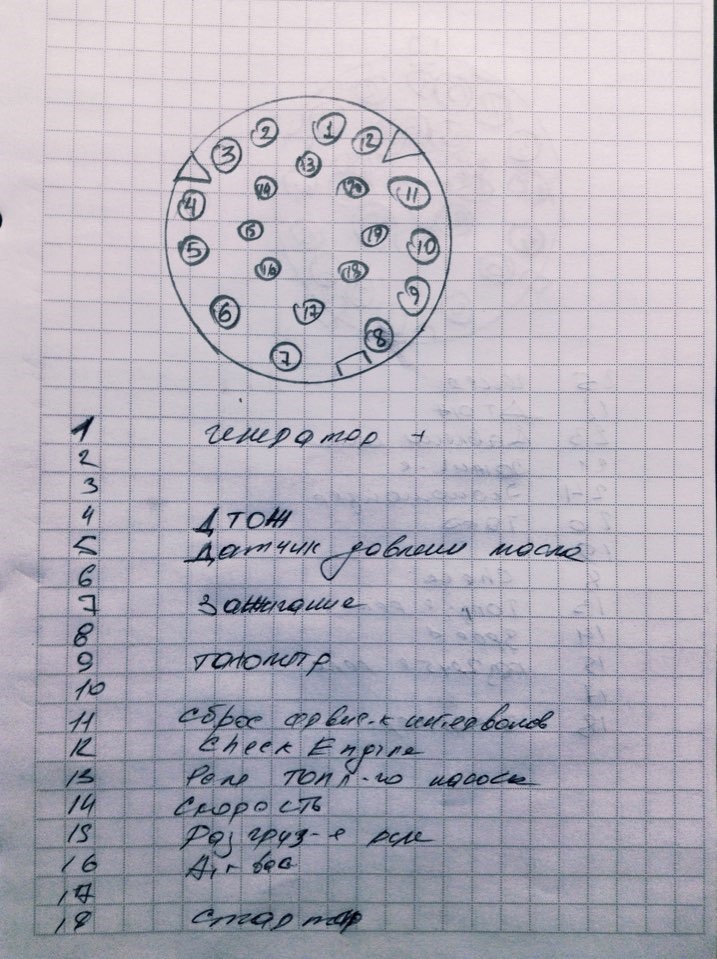 2 1 12
3 13
14 20 11
4
15 19 10
5
16 18
9
6 17
8
7
1 генератор +
2
3
4 ДТОЖ
5 Датчик давлени масла
6
7 Зажигание
8
9 тахометр
10
11 Сброс сервис-х интервалов
12 Check Engine
13 Реле топл-го насоса
14 Скорость
15 Разгруз-е реле
16 Air bag
17
18 стартер